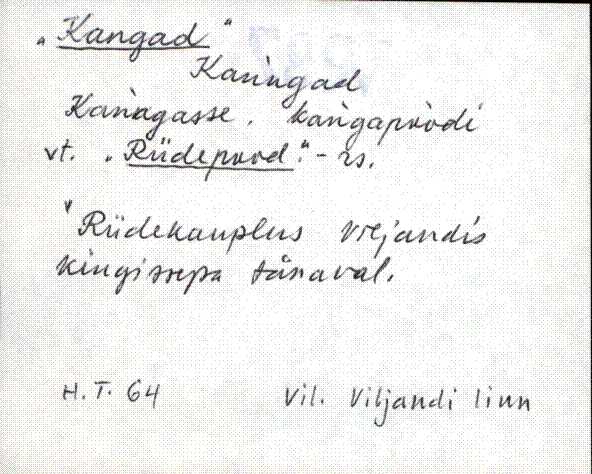 „Kangad"
Kaǹngad
Kaǹngasse, kaǹgapoodi
vt. „Riidepood." - rs.
Riidekauplus viljandis
kingissepa tänaval.
H.T. 64 Vil. Viljandi linn